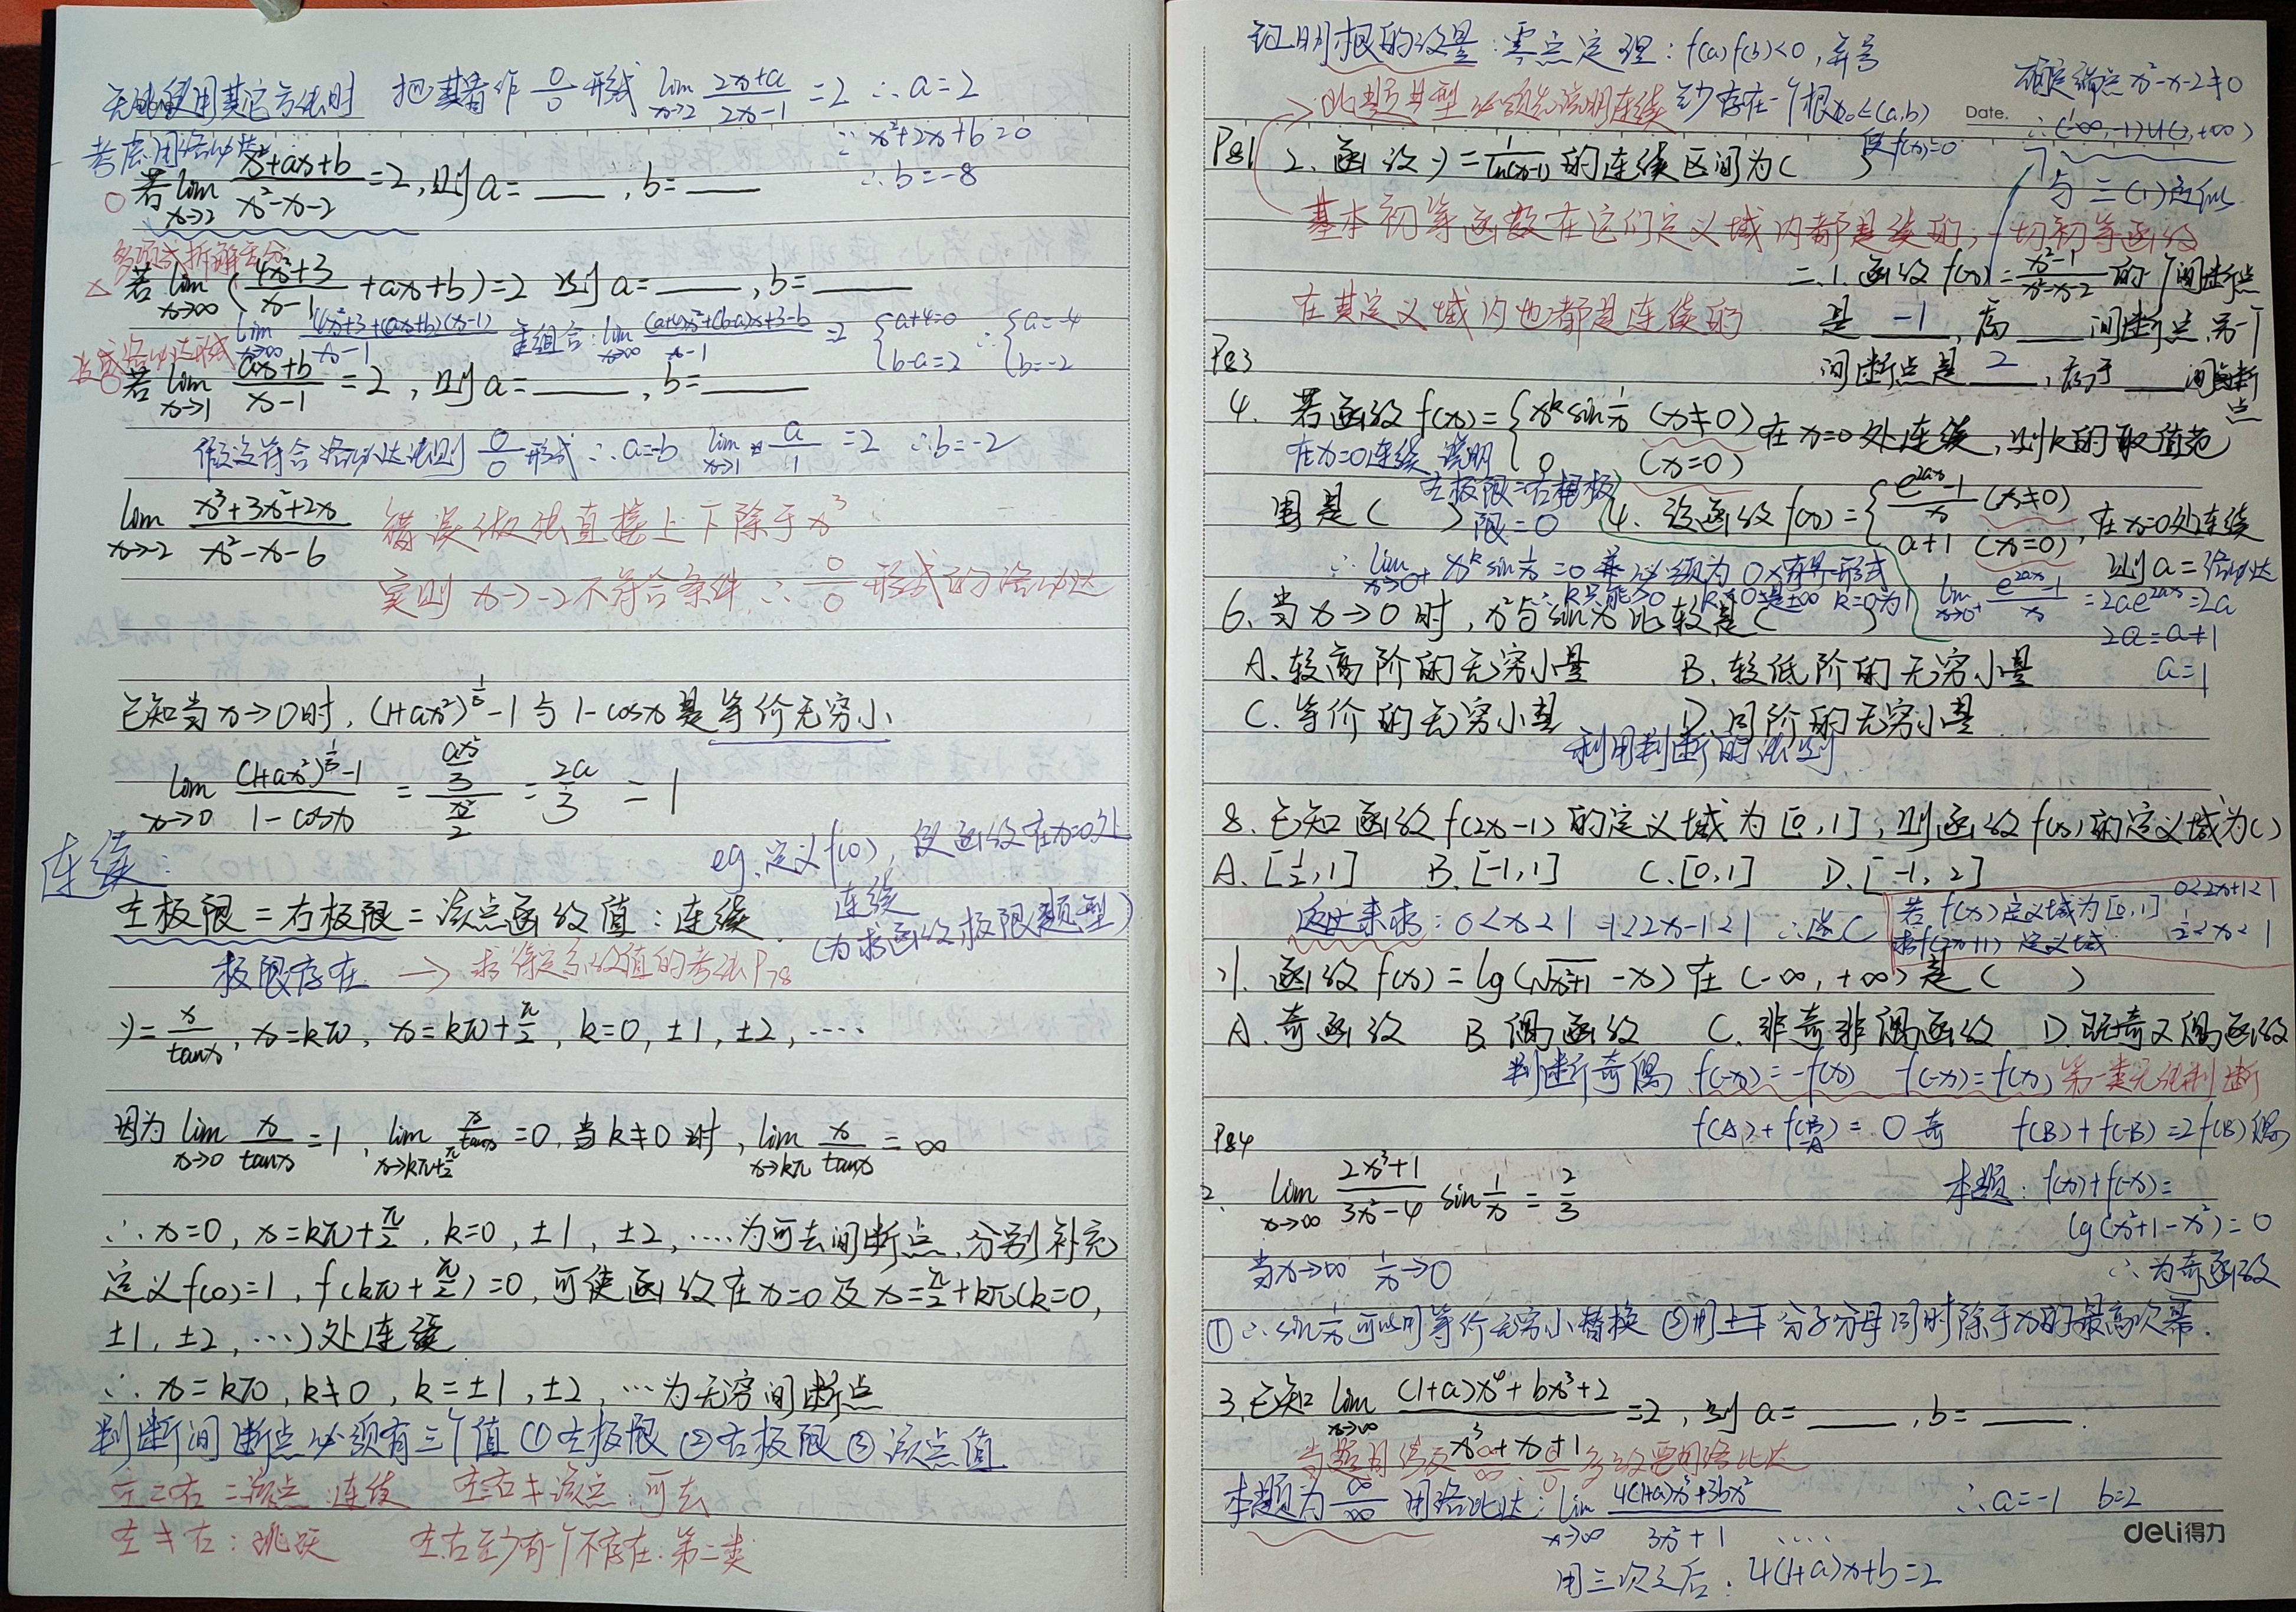 无法使用其它方法时 把其看作 0/0 形式 lim x→2 (2x+a)/(2x-1) =2 ∴a=2
考虑用洛必达 ∵x²+2x+b=0
∴b=-8
若 lim x→2 (x²+ax+b)/(x²-x-2) =2,则a=____,b=____
多项式拆解
△ 若 lim x→∞ ((4x²+3)/(x-1) +ax+b)=2 则a=____,b=____
lim x→∞ (4x²+3+(ax+b)(x-1))/(x-1) 重组合: lim x→∞ ((a+4)x²+(b-a)x+3-b)/(x-1) =2 {a+4=0 b-a=2 ∴{a=-4 b=-2
若 lim x→1 (ax+b)/(x-1) =2,则a=____,b=____
假设符合洛必达法则 0/0 形式 ∴a=-b lim x→1 a/1 =2 ∴b=-2
lim x→-2 (x³+3x²+2x)/(x²-x-6) 错误做法直接上下除于x³
实则 x→-2不符合条件 ∴ 0/0 形式的洛必达
已知当x→0时,(1+ax²)^(1/3)-1与1-cosx是等价无穷小
lim x→0 ((1+ax²)^(1/3)-1)/(1-cosx) = (ax²/3)/(x²/2) = 2a/3 =1
连续: eg.定义f(0),使函数在x=0处
连续
左极限=右极限=该点函数值:连续. (为求函数极限题型)
极限存在 → 求待定系数值的考法P78
y=x/tanx, x=kπ, x=kπ+π/2, k=0,±1,±2,····
因为 lim x→0 x/tanx =1, lim x→kπ+π/2 x/tanx =0,当k≠0时, lim x→kπ x/tanx =∞
∴x=0,x=kπ+π/2,k=0,±1,±2,····为可去间断点,分别补充
定义f(0)=1,f(kπ+π/2)=0,可使函数在x=0及x=π/2+kπ(k=0,
±1,±2,…)处连续
∴x=kπ,k≠0,k=±1,±2,…为无穷间断点
判断间断点必须有三个值①左极限②右极限③该点值
左=右=该点:连续 左右≠该点:可去
左≠右:跳跃 左右至少有一个不存在:第二类
证明根的设是:零点定理:f(a)f(b)<0,异号
确定端点x²-x-2≠0
此题典型必须先说明连续 至少存在一个根x₀∈(a,b)
Date.
使f(x)=0
∴(-∞,-1)∪(2,+∞)
P81 2.函数y=1/ln(x-1)的连续区间为( )
与三(1)类似
基本初等函数在它们定义域内都是连续的,一切初等函数
在其定义域内也都是连续的
二.1.函数f(x)=(x²-1)/(x²-x-2)的一个间断点
是 -1 ,属____间断点,另一个
间断点是 2 ,属于____间断点
P83
4.若函数f(x)={x^k sin 1/x (x≠0) 0 (x=0) 在x=0处连续,则k的取值范
围是( )
在x=0连续 说明
左极限=右极限=0
4.设函数f(x)={(e^(2ax)-1)/x (x≠0) a+1 (x=0),在x=0处连续
则a=
洛必达
∴ lim x→0⁺ x^k sin 1/x =0 必须为 0×有界形式
∴k只能>0
lim x→0⁺ (e^(2ax)-1)/x =2ae^(2ax)=2a
2a=a+1
a=1
6.当x→0时,x²与sinx比较是( )
A.较高阶的无穷小量 B.较低阶的无穷小量
C.等价的无穷小量 D.同阶的无穷小量
利用判断的法则
8.已知函数f(2x-1)的定义域为[0,1],则函数f(x)的定义域为( )
A.[1/2,1] B.[-1,1] C.[0,1] D.[-1,2]
反过来求:0<x<1 -1<2x-1<1 ∴选C
若f(x)定义域为[0,1] 0<2x+1<1
求f(2x+1)定义域 -1/2<x<1
11.函数f(x)=lg(√(x²+1)-x)在(-∞,+∞)是( )
A.奇函数 B.偶函数 C.非奇非偶函数 D.既奇又偶函数
判断奇偶 f(-x)=-f(x) f(-x)=f(x) 第一类无法判断
f(A)+f(-A)=0奇 f(B)+f(-B)=2f(B)偶
P84
2. lim x→∞ (2x³+1)/(3x²-4) sin 1/x = 2/3
本题:f(x)+f(-x)=
lg(x²+1-x²)=0
∴为奇函数
当x→∞ 1/x→0
①∴sin 1/x可以用等价无穷小替换 ②用上下分子分母同时除于x的最高次幂.
3.已知 lim x→∞ ((1+a)x⁴+bx³+2)/(x³+x+1) =2,则a=____,b=____.
本题为 ∞/∞ 用洛必达: lim x→∞ (4(1+a)x³+3bx²)/(3x²+1) ···· ∴a=-1 b=2
用三次之后:4(1+a)x+b=2
deli得力